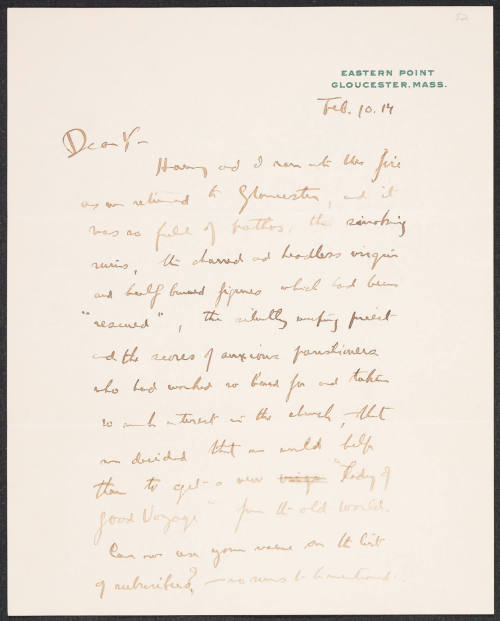 52
EASTERN POINT
GLOUCESTER, MASS.
Feb. 10. 14
Dear Y-
Harry and I ran into this fire
as we returned to Gloucester, and it
was so full of pathos, the smoking
ruins, the charred and headless virgin
and half burned figures which had been
"rescued", the silently weeping priest
and the scores of anxious parishioners
who had worked so hard for and taken
so much interest in the church, that
we decided that we would help
them to get a new virgin "Lady of
Good Voyage" from the old world.
Can we use your name on the list
of subscribers? - no sums to be mentioned.